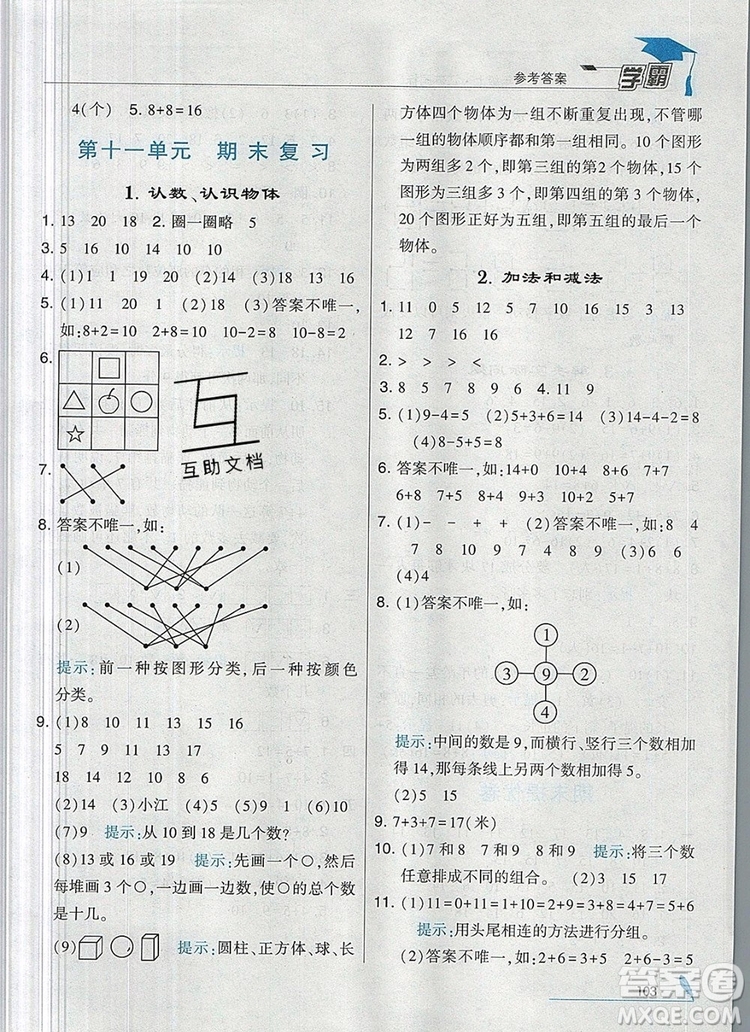 参考答案
学霸
4(个) 5. 8+8=16
第十一单元 期末复习
1. 认数、认识物体
1. 13 20 18 2. 圈一圈略 5
3. 5 16 10 14 10 10
4. (1)1 1 19 20 (2)14 (3)18 16
5. (1)11 20 1 (2)18 (3)答案不唯一,
如: 8+2=10 2+8=10 10-2=8 10-8=2
6.
7.
8. 答案不唯一,如:
(1)
(2)
提示:前一种按图形分类,后一种按颜色
分类。
9. (1)8 10 11 13 15 16
5 7 9 11 17 19
18 14 12 10 8 6
(2)14 (3)小江 (4)10 (5)9 (6)15
(7)9 提示:从 10 到 18 是几个数?
(8)13 或 16 或 19 提示:先画一个○,然后
每堆画 3 个○,一边画一边数,使○的总个数
是十几。
(9) 提示:圆柱、正方体、球、长
方体四个物体为一组不断重复出现,不管哪
一组的物体顺序都和第一组相同。10 个图形
为两组多 2 个,即第三组的第2 个物体,15 个
图形为三组多 3 个,即第四组的第三个物体,
20 个图形正好为五组,即第五组的最后一个
物体。
2. 加法和减法
1. 11 0 5 12 5 7 10 16 15 3 13
12 7 16 16
2. > > > <
3. 8 5 7 8 9 6 4. 11 9
5. (1)9-4=5 (2)5+3+6=14 (3)14-4-2=8
(4)8-5+5=8
6. 答案不唯一,如: 14+0 10+4 8+6 7+7
6+8 5+9 4+10 9+5
7. (1)- - + + (2)答案不唯一,如: 8 4
7 18 10 9 14 9 (3)6 7 8 9
(4)4
8. (1)答案不唯一,如:
1
3 9 2
4
提示:中间的数是 9,而横行、竖行三个数相加
得 14,那每条线上另两个数相加得 5。
(2)5 15
9. 7+3+7=17(米)
10. (1)7 和 8 7 和 9 8 和 9 提示:将三个数
任意排成不同的组合。
11. (1)0+11=1+10=2+9=3+8=4+7=5+6
提示:用头尾相连的方法进行分组。
(2)答案不唯一,如: 2+6=3+5 2+6-3=5
103
互助文档
答案圈
MXQE.COM